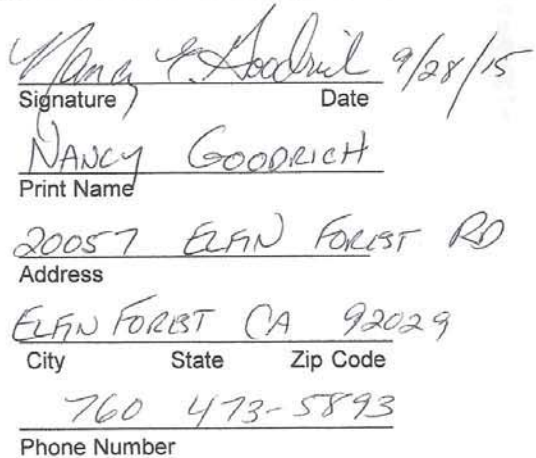 Nancy E. Goodrich 9/28/15
Signature Date
NANCY GOODRICH
Print Name
20057 ELFIN FOREST RD
Address
ELFIN FOREST CA 92029
City State Zip Code
760 473-5893
Phone Number